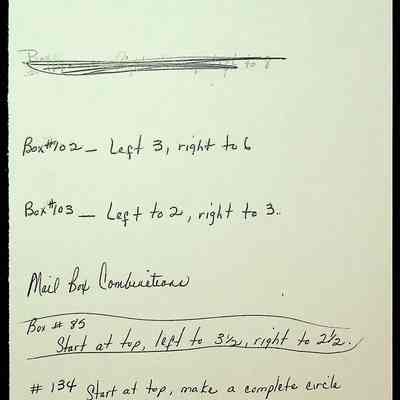 Box #102 — Left 3, right to 6
Box #103 — Left to 2, right to 3.
Mail Box Combinations
Box # 85
Start at top, left to 3½, right to 2½.
# 134 Start at top, make a complete circle